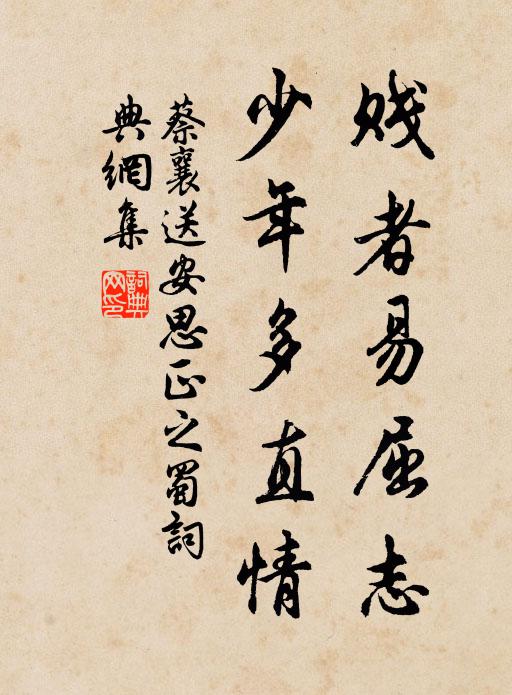 贱者易屈志
少年多直情
蔡襄送安思正之蜀詞
典網集
詞典网印